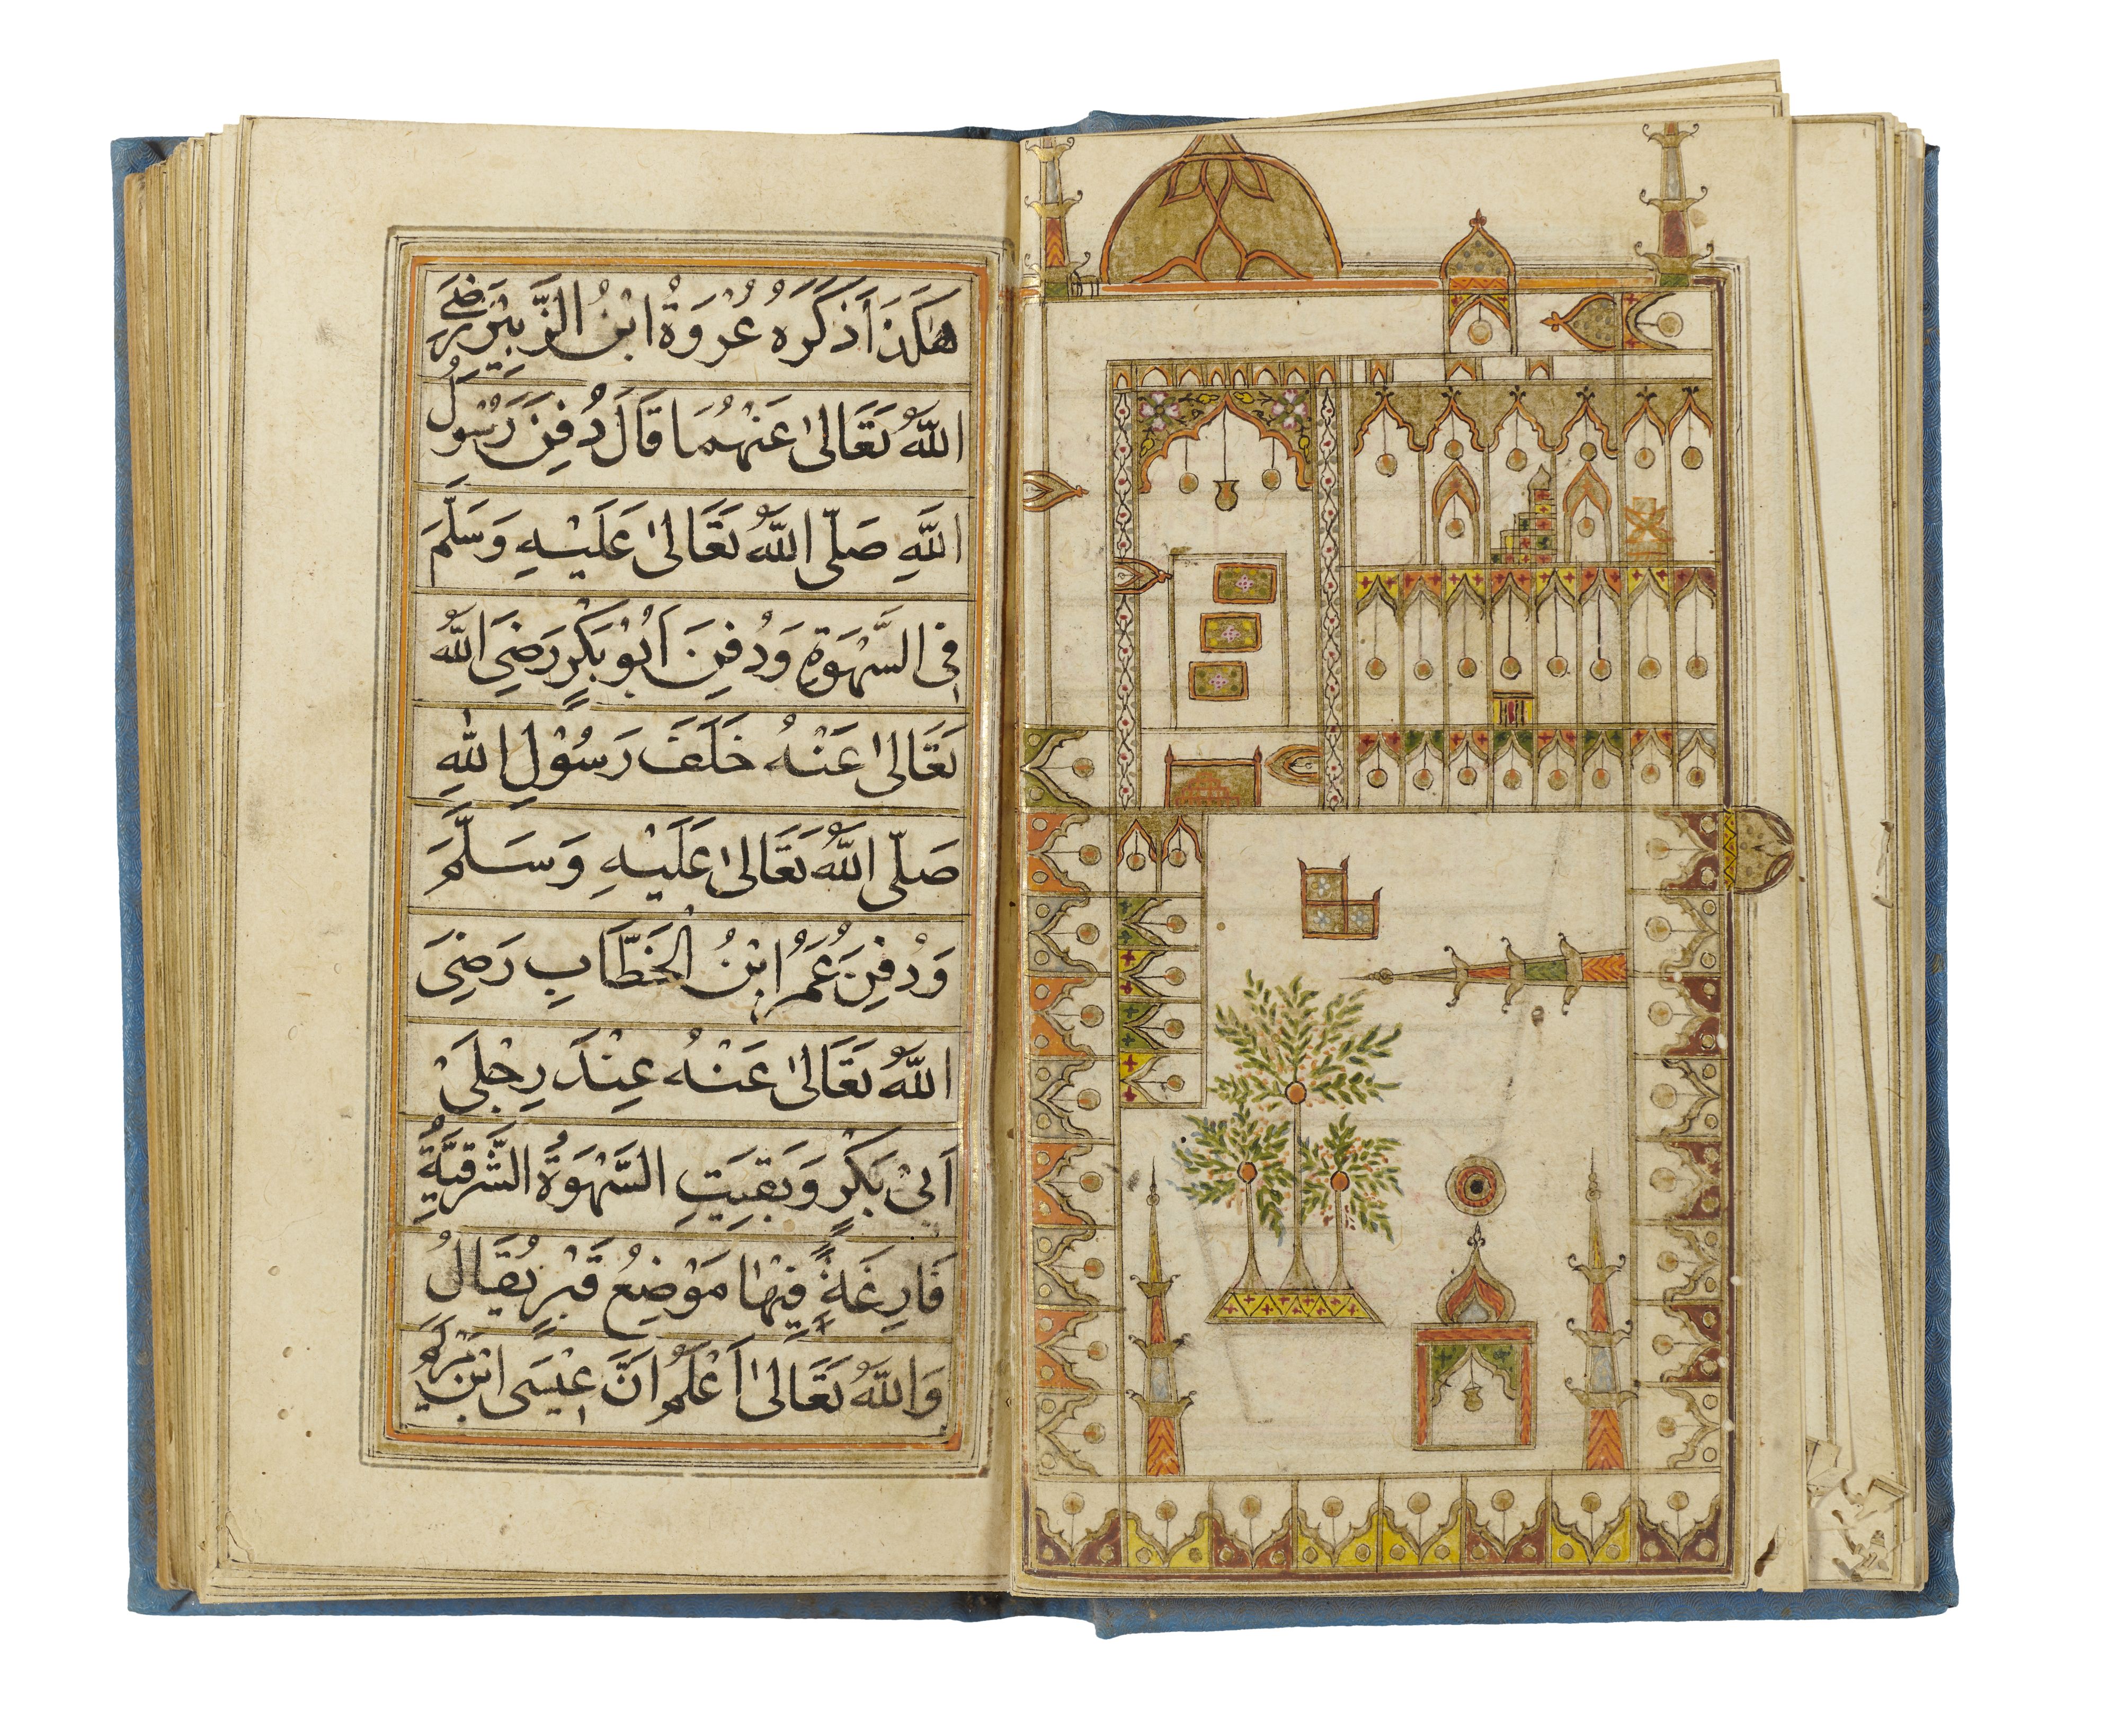 هٰكَذَا ذَكَرَهُ عُرْوَةُ ابْنُ الزُّبَيْرِ رَضِيَ
اللّٰهُ تَعَالىٰ عَنْهُمَا قَالَ دُفِنَ رَسُوْلُ
اللّٰهِ صَلَّى اللّٰهُ تَعَالىٰ عَلَيْهِ وَسَلَّمَ
فِى السَّهْوَةِ وَدُفِنَ اَبُوْبَكْرٍ رَضِيَ اللّٰهُ
تَعَالىٰ عَنْهُ خَلَفَ رَسُوْلِ اللّٰهِ
صَلَّى اللّٰهُ تَعَالىٰ عَلَيْهِ وَسَلَّمَ
وَدُفِنَ عُمَرُ ابْنُ الْخَطَّابِ رَضِيَ
اللّٰهُ تَعَالىٰ عَنْهُ عِنْدَ رِجْلَيْ
اَبِيْ بَكْرٍ وَبَقِيَتِ السَّهْوَةُ الشَّرْقِيَّةُ
فَارِغَةً فِيْهَا مَوْضِعُ قَبْرٍ يُقَالُ
وَاللّٰهُ تَعَالىٰ اَعْلَمُ اَنَّ عِيْسَى ابْنَ مَرْيَمَ